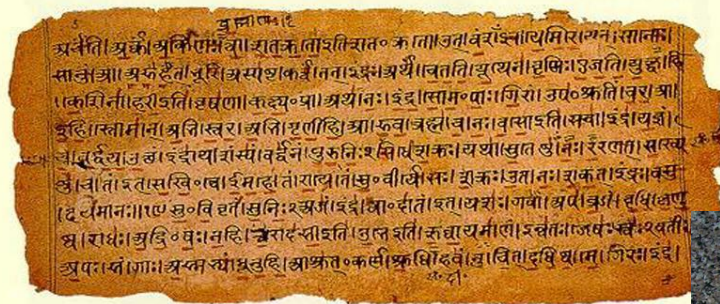 अर्चंति। अर्कं। अर्किणः। शतक्रतो इति शत॰क्रतो। उत्। वंशंऽइव। येमिरे। यत्। सानोः।
सानुं। आ। अरुहत्। भूरि। अस्पष्ट। कर्त्वं। तत्। इंद्रः। अर्थं। चेतति। यूथेन। वृष्णिः। एजति। युक्ष्व। हि
। केशिना। हरी इति। वृषणा। कक्ष्य॰प्रा। अथ। नः। इंद्र। सोम॰पाः। गिरां। उप॰श्रुतिं। चर। आ।
इहि। स्तोमान्। अभि। स्वर। अभि। गृणीहि। आ। रुव। ब्रह्म। च। नः। वसो इति। सचा। इंद्र। यज्ञं।
च। वर्द्धय। उक्थं। इंद्राय। शंस्यं। वर्द्धनं। पुरुनिःसिधे। शक्रः। यथा। सुतेषु। नः। ररणत्। सख्ये
षु। च। तं। इत्। सखि॰त्वे। ईमहे। तं। राये। तं। सु॰वीर्ये। सः। शक्रः। उत। नः। शकत्। इंद्रः। वसु
। दयमानः। १९ सु॰विवृतं। सुनिःऽअजं। इंद्र। त्वा॰दातं। इत्। यशः। गवां। अप। व्रजं। वृधि। कृणु
ष्व। राधः। अद्रि॰वः। नहि। त्वा। रोदसी इति। उभे इति। ऋघायमाणं। इन्वतः। जेषः। स्वः॰वतीः
अपः। सं। गाः। अस्मभ्यं। धूनुहि। आश्रुत्॰कर्ण। श्रुधि। हवं। नु। चित्। दधिष्व। मे। गिरः। इंद्र।